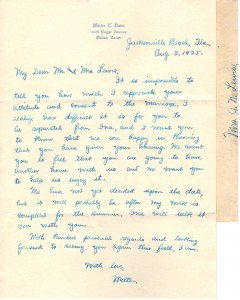 Jacksonville Beach, Fla.
Aug. 3, 1925.
My Dear Mr. & Mrs. Lewis,
It is impossible to
tell you how much I appreciate your
attitude and consent to the marriage. I
realize how difficult it is for you to
be separated from Ina, and I want you
to know that we are happy in knowing
that you have given your blessing. We want
you to feel that you are going to have
another home with us and we want you
to help us enjoy it.
We have not yet decided upon the date,
but it will probably be after my work is
completed for the summer. Ina will talk it
over with you.
With kindest personal regards and looking
forward to seeing you again this fall, I am
With love,
Walter.